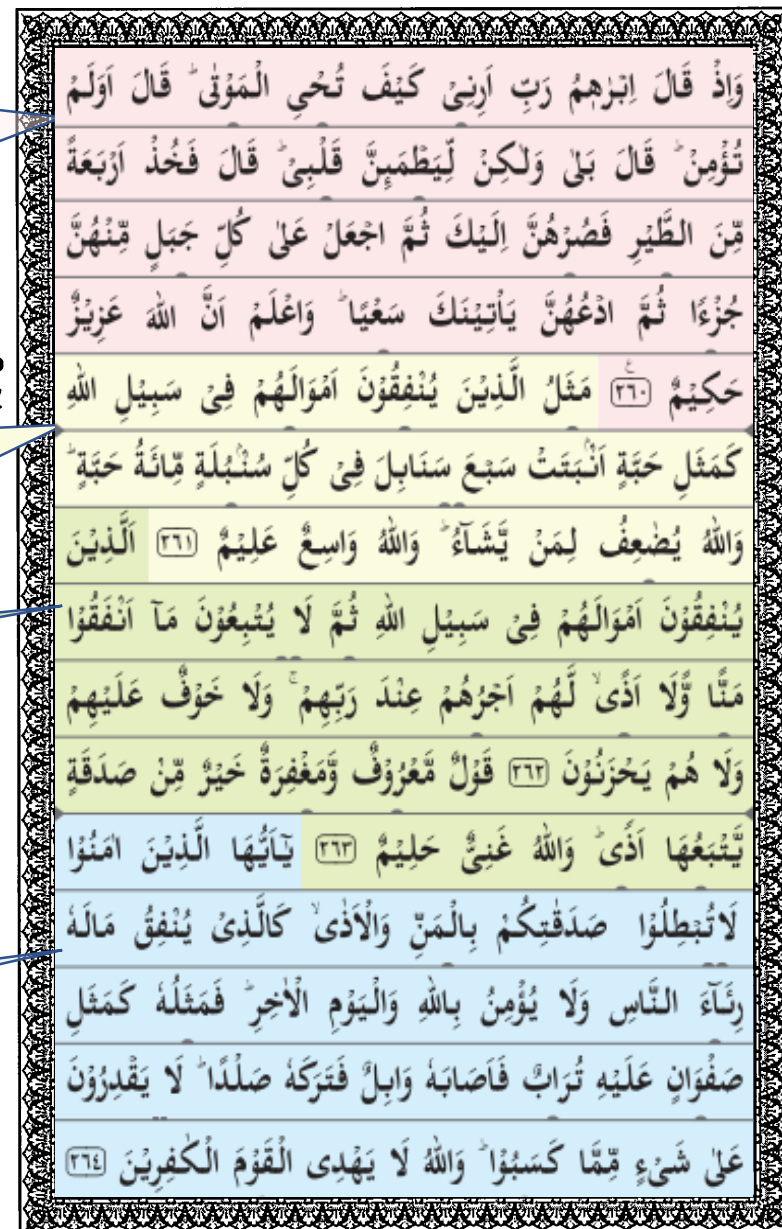 وَاِذْ قَالَ اِبْرٰهٖمُ رَبِّ اَرِنِیْ كَیْفَ تُحْیِ الْمَوْتٰی ؕ قَالَ اَوَلَمْ
تُؤْمِنْ ؕ قَالَ بَلٰی وَلٰكِنْ لِّیَطْمَىِٕنَّ قَلْبِیْ ؕ قَالَ فَخُذْ اَرْبَعَةً
مِّنَ الطَّیْرِ فَصُرْهُنَّ اِلَیْكَ ثُمَّ اجْعَلْ عَلٰی كُلِّ جَبَلٍ مِّنْهُنَّ
جُزْءًا ثُمَّ ادْعُهُنَّ یَاْتِیْنَكَ سَعْیًا ؕ وَاعْلَمْ اَنَّ اللّٰهَ عَزِیْزٌ
حَكِیْمٌ ﴿٢٦٠﴾ ع مَثَلُ الَّذِیْنَ یُنْفِقُوْنَ اَمْوَالَهُمْ فِیْ سَبِیْلِ اللّٰهِ
كَمَثَلِ حَبَّةٍ اَنْۢبَتَتْ سَبْعَ سَنَابِلَ فِیْ كُلِّ سُنْۢبُلَةٍ مِّائَةُ حَبَّةٍ ؕ
وَاللّٰهُ یُضٰعِفُ لِمَنْ یَّشَآءُ ؕ وَاللّٰهُ وَاسِعٌ عَلِیْمٌ ﴿٢٦١﴾ اَلَّذِیْنَ
یُنْفِقُوْنَ اَمْوَالَهُمْ فِیْ سَبِیْلِ اللّٰهِ ثُمَّ لَا یُتْبِعُوْنَ مَاۤ اَنْفَقُوْا
مَنًّا وَّلَاۤ اَذًی ۙ لَّهُمْ اَجْرُهُمْ عِنْدَ رَبِّهِمْ ۚ وَلَا خَوْفٌ عَلَیْهِمْ
وَلَا هُمْ یَحْزَنُوْنَ ﴿٢٦٢﴾ قَوْلٌ مَّعْرُوْفٌ وَّمَغْفِرَةٌ خَیْرٌ مِّنْ صَدَقَةٍ
یَّتْبَعُهَاۤ اَذًی ؕ وَاللّٰهُ غَنِیٌّ حَلِیْمٌ ﴿٢٦٣﴾ یٰۤاَیُّهَا الَّذِیْنَ اٰمَنُوْا
لَا تُبْطِلُوْا صَدَقٰتِكُمْ بِالْمَنِّ وَالْاَذٰی ۙ كَالَّذِیْ یُنْفِقُ مَالَهٗ
رِئَآءَ النَّاسِ وَلَا یُؤْمِنُ بِاللّٰهِ وَالْیَوْمِ الْاٰخِرِ ؕ فَمَثَلُهٗ كَمَثَلِ
صَفْوَانٍ عَلَیْهِ تُرَابٌ فَاَصَابَهٗ وَابِلٌ فَتَرَكَهٗ صَلْدًا ؕ لَا یَقْدِرُوْنَ
عَلٰی شَیْءٍ مِّمَّا كَسَبُوْا ؕ وَاللّٰهُ لَا یَهْدِی الْقَوْمَ الْكٰفِرِیْنَ ﴿٢٦٤﴾